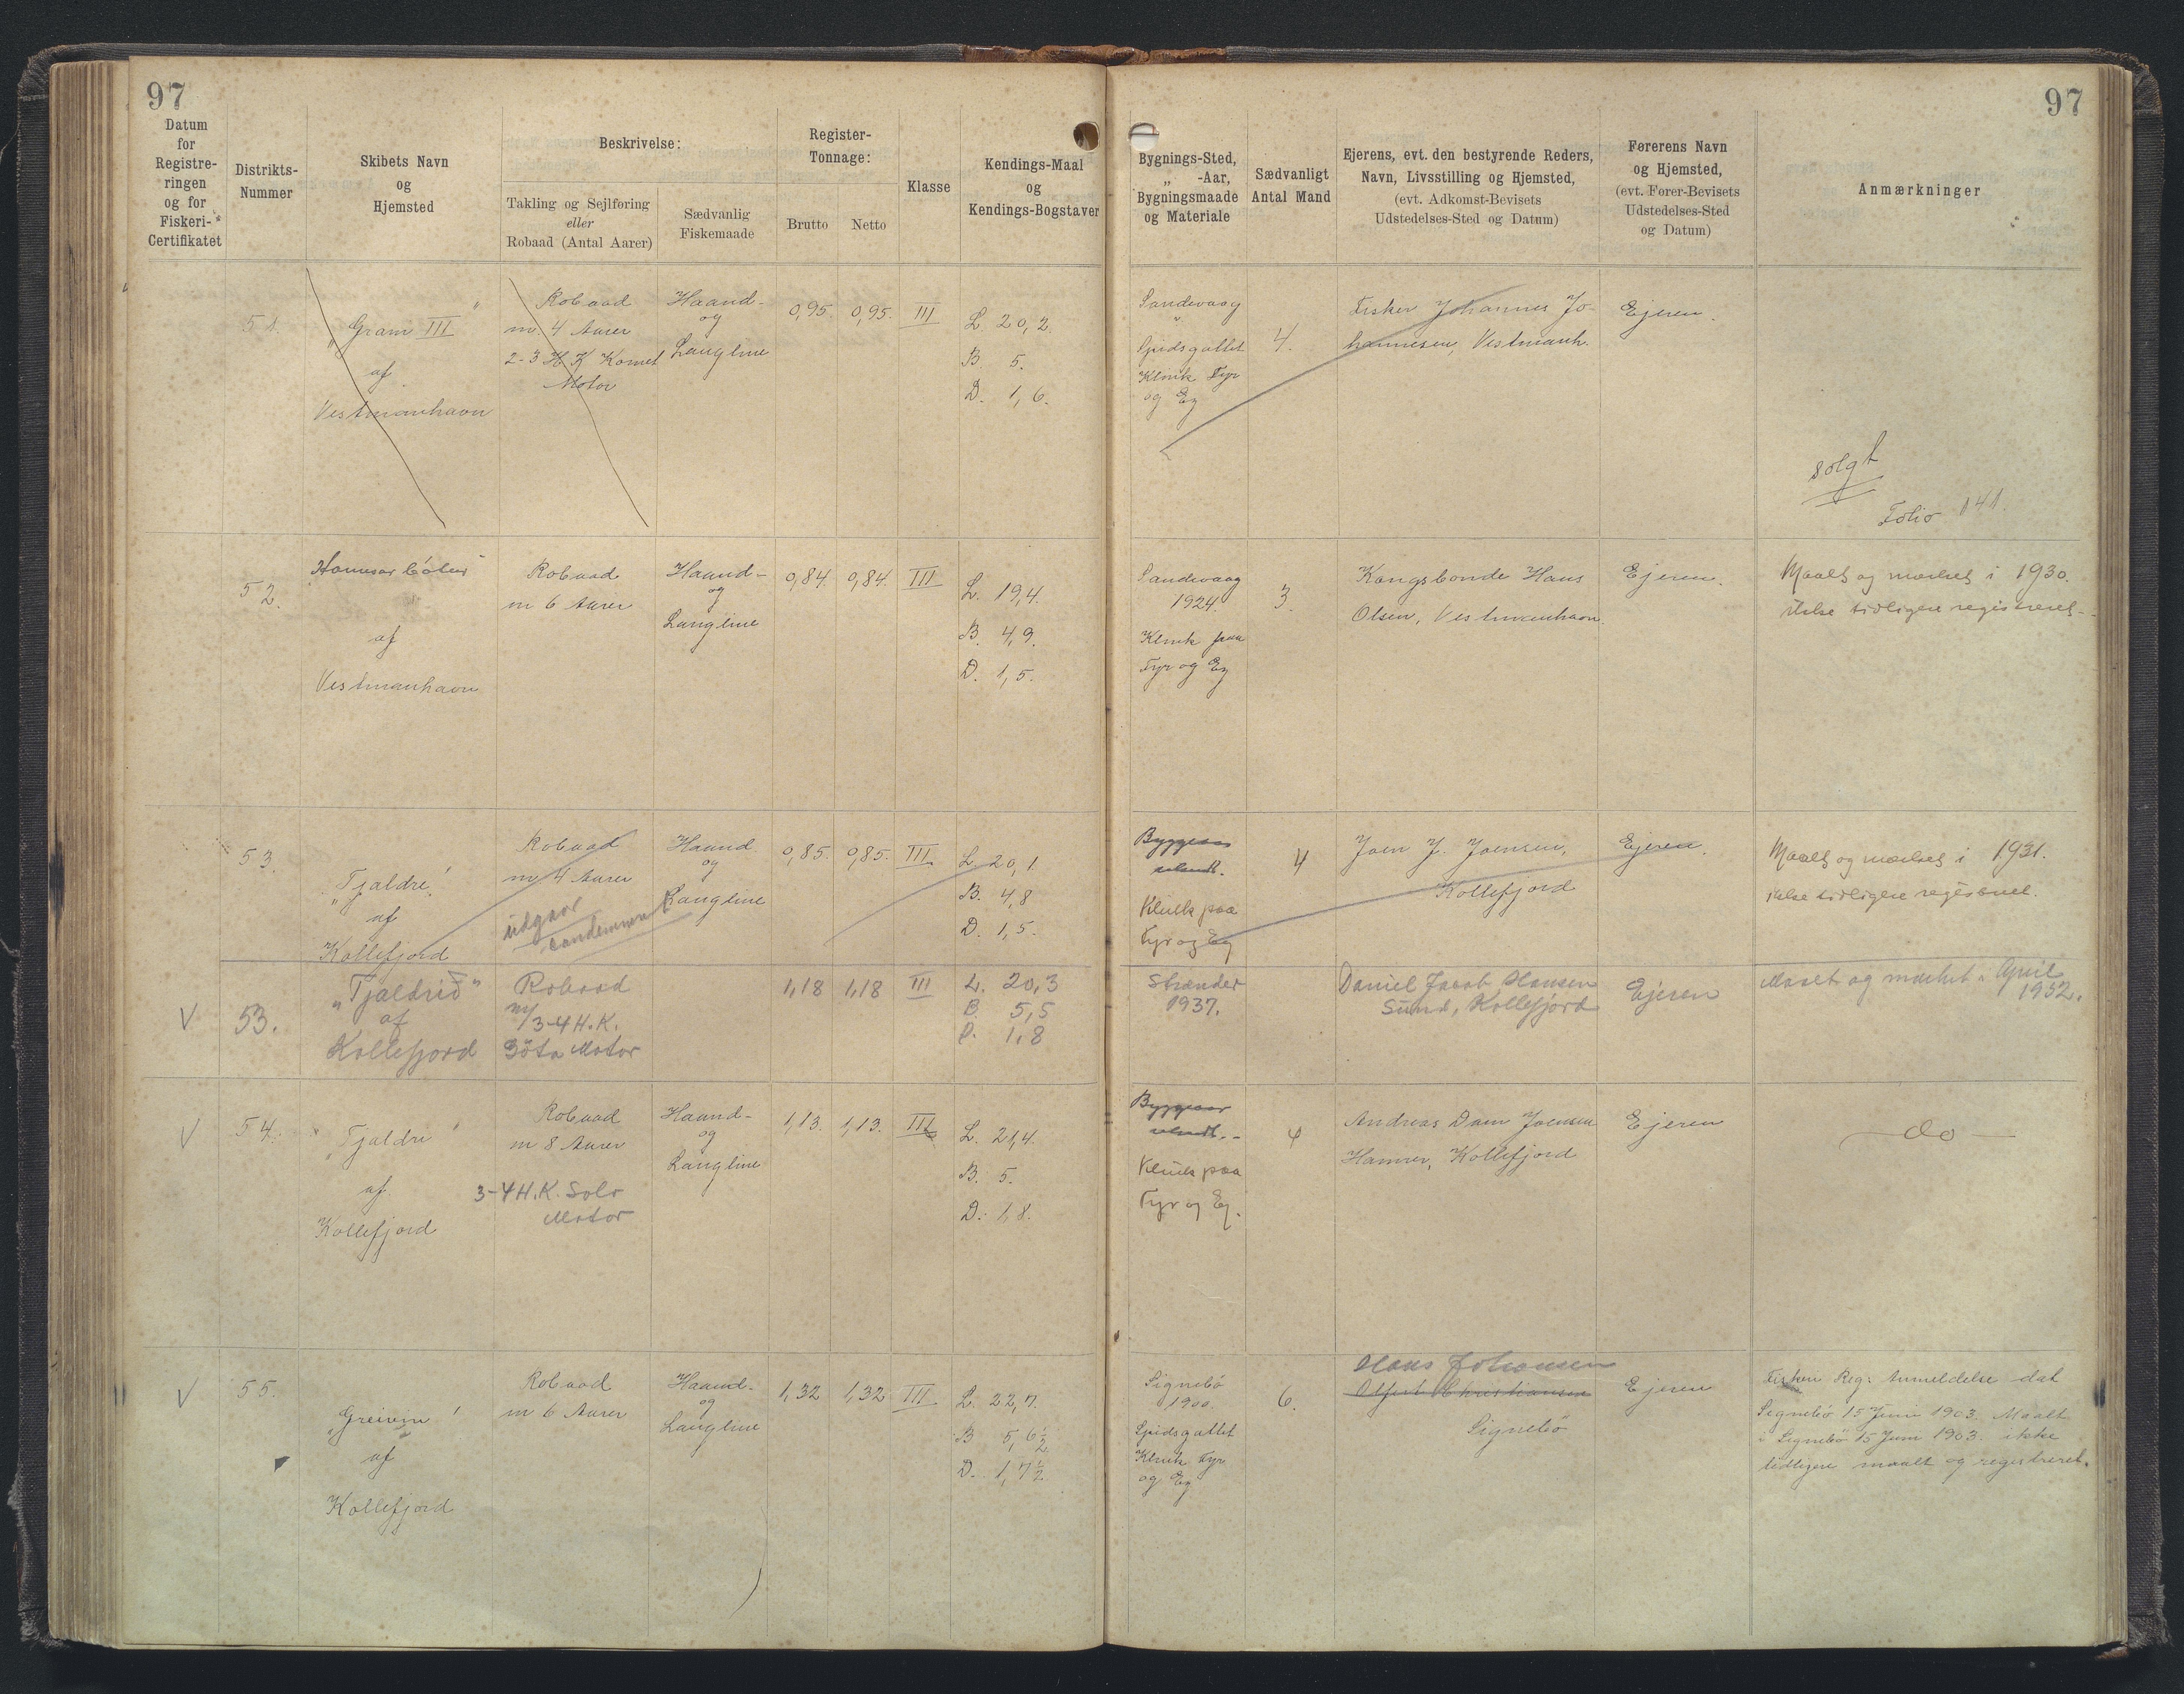 97
97
Datum
for
Registre-
ringen
og for
Fiskeri-
Certifikatet
Distrikts-
Nummer
Skibets Navn
og
Hjemsted
Beskrivelse:
Takling og Sejlføring
eller
Robaad (Antal Aarer)
Sædvanlig
Fiskemaade
Register-
Tonnage:
Brutto
Netto
Klasse
Kendings-Maal
og
Kendings-Bogstaver
Bygnings-Sted,
„ -Aar,
Bygningsmaade
og Materiale
Sædvanligt
Antal Mand
Ejerens, evt. den bestyrende Reders,
Navn, Livsstilling og Hjemsted,
(evt. Adkomst-Bevisets
Udstedelses-Sted og Datum)
Førerens Navn
og Hjemsted,
(evt. Fører-Bevisets
Udstedelses-Sted
og Datum)
Anmærkninger
51.
„Gram III"
af
Vestmanhavn
Robaad
m. 4 Aarer
2-3 H K Komet
Motor
Haand-
og
Langline
0,95.
0,95.
III
L. 20,2.
B. 5.
D. 1,6.
Sandevaag
"
Spidsgattet
Klink Fyr
og Eg
4.
Fisker Johannes Jo-
hannesen, Vestmanh.
Ejeren.
solgt
Folio 141.
52.
af
Vestmanhavn
Robaad
m 6 Aarer
Haand-
og
Langline
0,84.
0,84.
III
L. 19,4.
B. 4,9.
D. 1,5.
Sandevaag
1924.
Klink paa
Fyr og Eg
3.
Kongsbonde Hans
Olsen, Vestmanhavn.
Ejeren.
Maalt og mærket i 1930.
ikke tidligere registreret.
53.
„Tjaldre"
af
Kollefjord
Robaad
m 4 Aarer
udgaar
condemneret
Haand
og
Langline
0,85.
0,85.
III
L. 20,1.
B. 4,8
D. 1,5.
Byggeaar
ubendt.
Klink paa
Fyr og Eg
4
Joen J. Joensen,
Kollefjord
Ejeren.
Maalt og mærket i 1931.
ikke tidligere registreret.
V
53.
„Tjaldrið"
af
Kollefjord
Robaad
m/
3-4 H.K.
Göta Motor
1,18
1,18
III
L. 20,3
B. 5,5
D. 1,8
Strænder
1937.
Daniel Jacob Hansen
Sund, Kollefjord
Ejeren
Maalt og mærket i April
1952.
V
54.
„Tjaldri"
af
Kollefjord
Robaad
m 8 Aarer
3-4 H.K. Solo
Motor
Haand-
og
Langline
1,13.
1,13.
III
L. 21,4.
B. 5.
D. 1,8.
Byggeaar
ubendt.-
Klink paa
Fyr og Eg.
4
Andreas Dam Joensen
Hamrer, Kollefjord
Ejeren
— do —
V
55.
„Greivin"
af
Kollefjord
Robaad
m 6 Aarer
Haand-
og
Langline
1,32
1,32
III
L. 22,7.
B 5,6½
D. 1,7½
Signebö
1900.
Spidsgattet
Klink Fyr
og Eg
6.
Hans Johansen
Christiansen
Signebö
Ejeren
Fisker Reg: Anmeldelse dat
Signebö 15 Juni 1903. Maalt
i Signebö 15 Juni 1903. ikke
tidligere maalt og registreret.